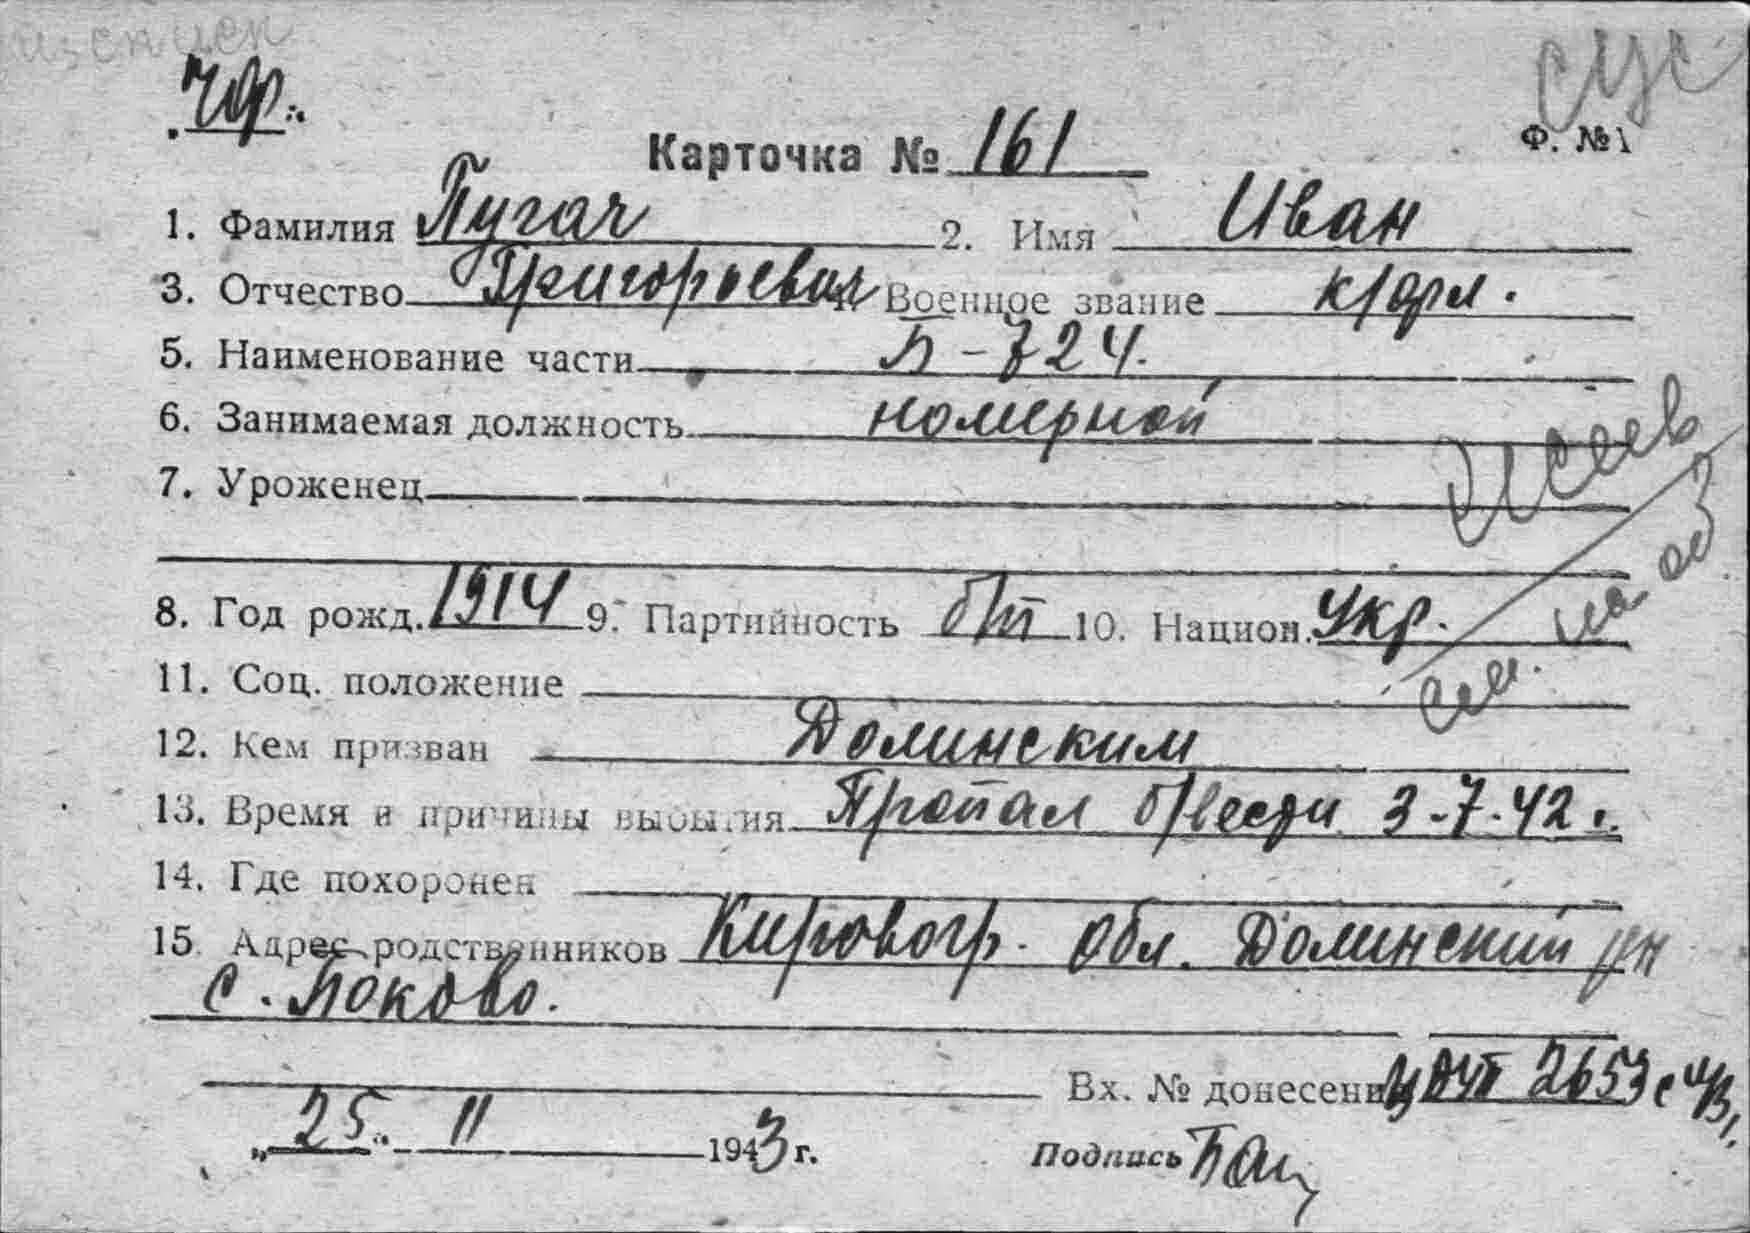 ЧФ.
Карточка № 161
Ф. №1
1. Фамилия Пугач 2. Имя Иван
3. Отчество Григорьевич 4. Военное звание к/фл.
5. Наименование части П-724.
6. Занимаемая должность номерной
7. Уроженец
8. Год рожд. 1914 9. Партийность б/п 10. Национ. Укр.
11. Соц. положение
12. Кем призван Долинским
13. Время и причины выбытия Пропал б/вести 3-7-42 г.
14. Где похоронен
15. Адрес родственников Кировогр. обл. Долинский рн
с. Боково.
Вх. № донесения 2653с
„25" 11 1943 г. Подпись
см. на об